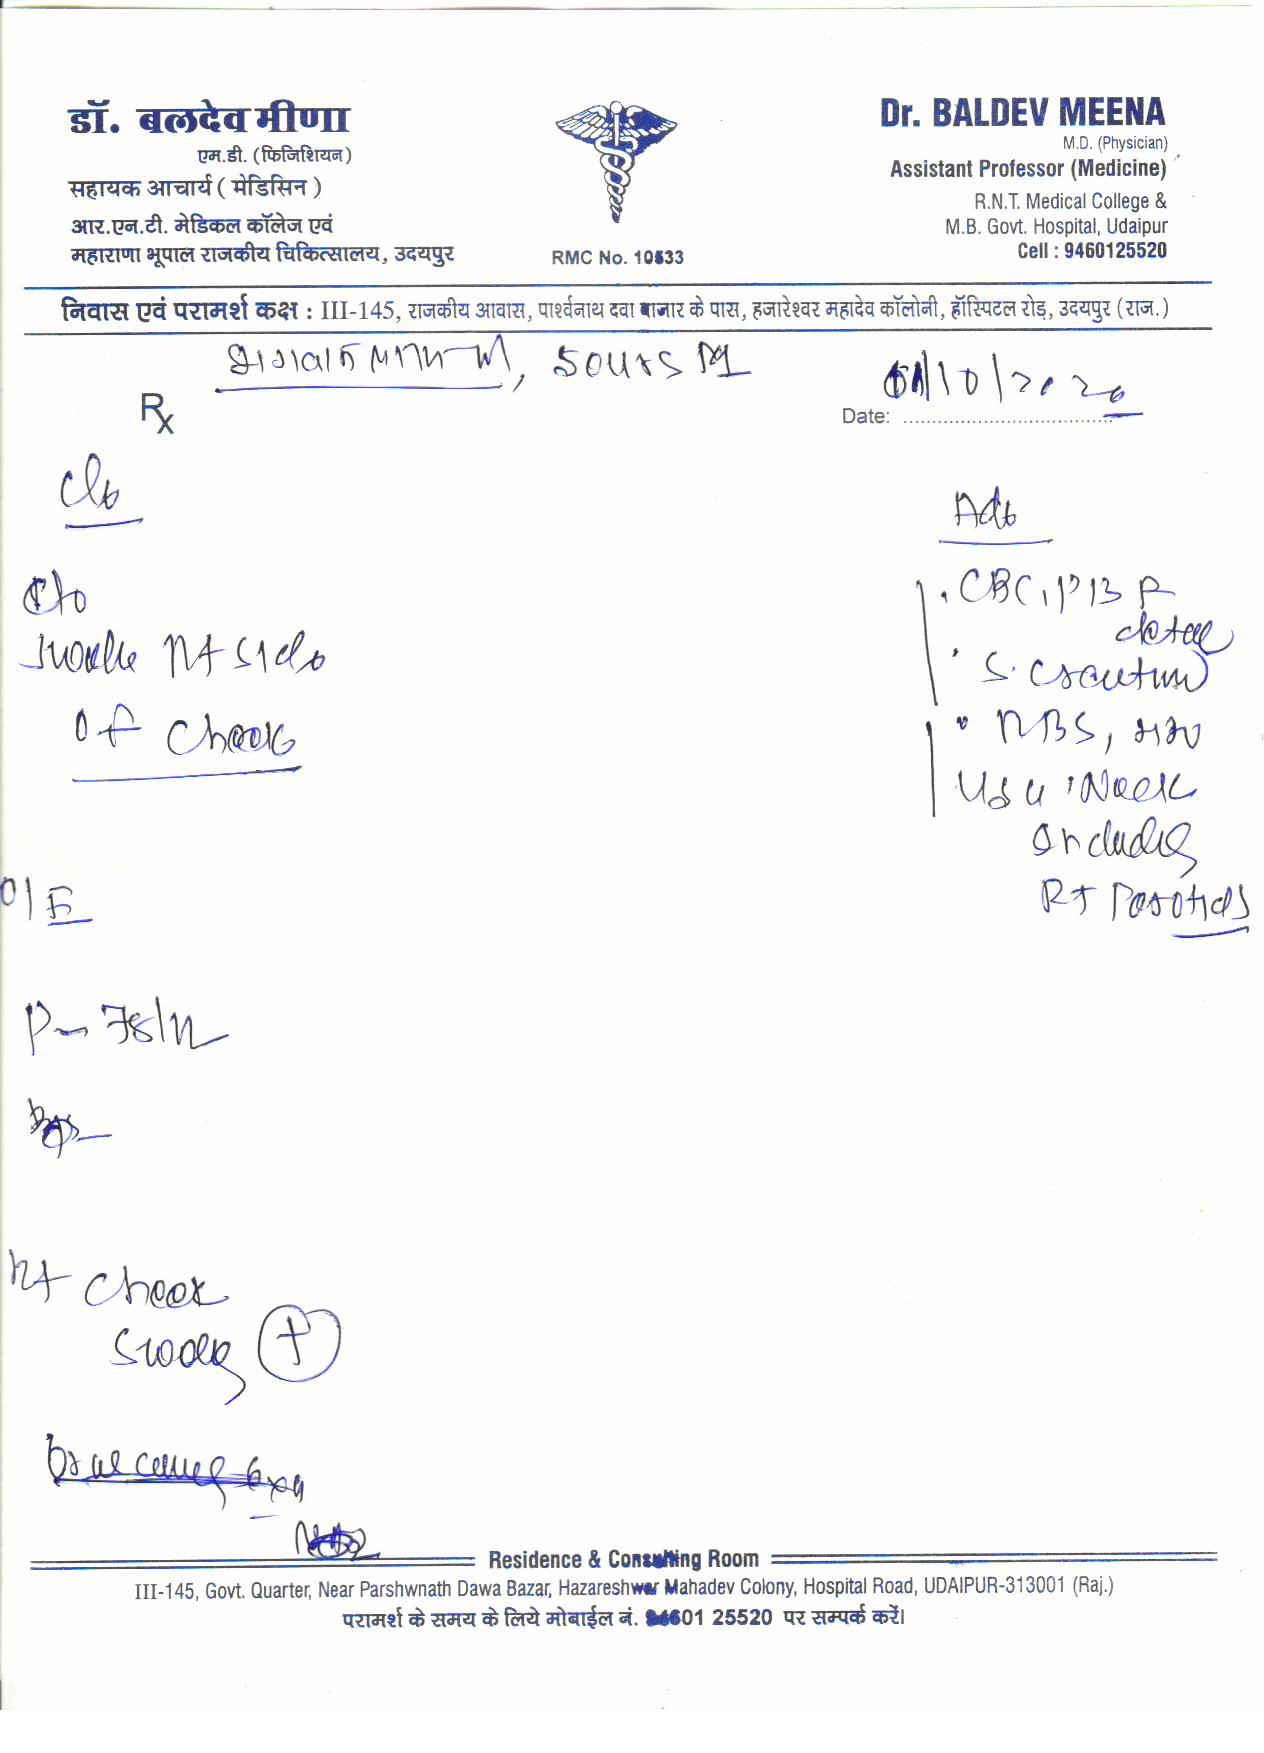 डॉ. बलदेव मीणा
एम.डी. (फिजिशियन)
सहायक आचार्य ( मेडिसिन )
आर.एन.टी. मेडिकल कॉलेज एवं
महाराणा भूपाल राजकीय चिकित्सालय, उदयपुर
RMC No. 10533
Dr. BALDEV MEENA
M.D. (Physician)
Assistant Professor (Medicine)
R.N.T. Medical College &
M.B. Govt. Hospital, Udaipur
Cell : 9460125520
निवास एवं परामर्श कक्ष : III-145, राजकीय आवास, पार्श्वनाथ दवा बाजार के पास, हजारेश्वर महादेव कॉलोनी, हॉस्पिटल रोड़, उदयपुर (राज.)
Rx
Date: 01/10/2020
C/o
Rt side
of cheek
O/E
P- 78/m
Rt cheek
+
CBC, PBF
S.
RBS,
Neck
including
Rt Parotids
Residence & Consulting Room
III-145, Govt. Quarter, Near Parshwnath Dawa Bazar, Hazareshwar Mahadev Colony, Hospital Road, UDAIPUR-313001 (Raj.)
परामर्श के समय के लिये मोबाईल नं. 94601 25520 पर सम्पर्क करें।